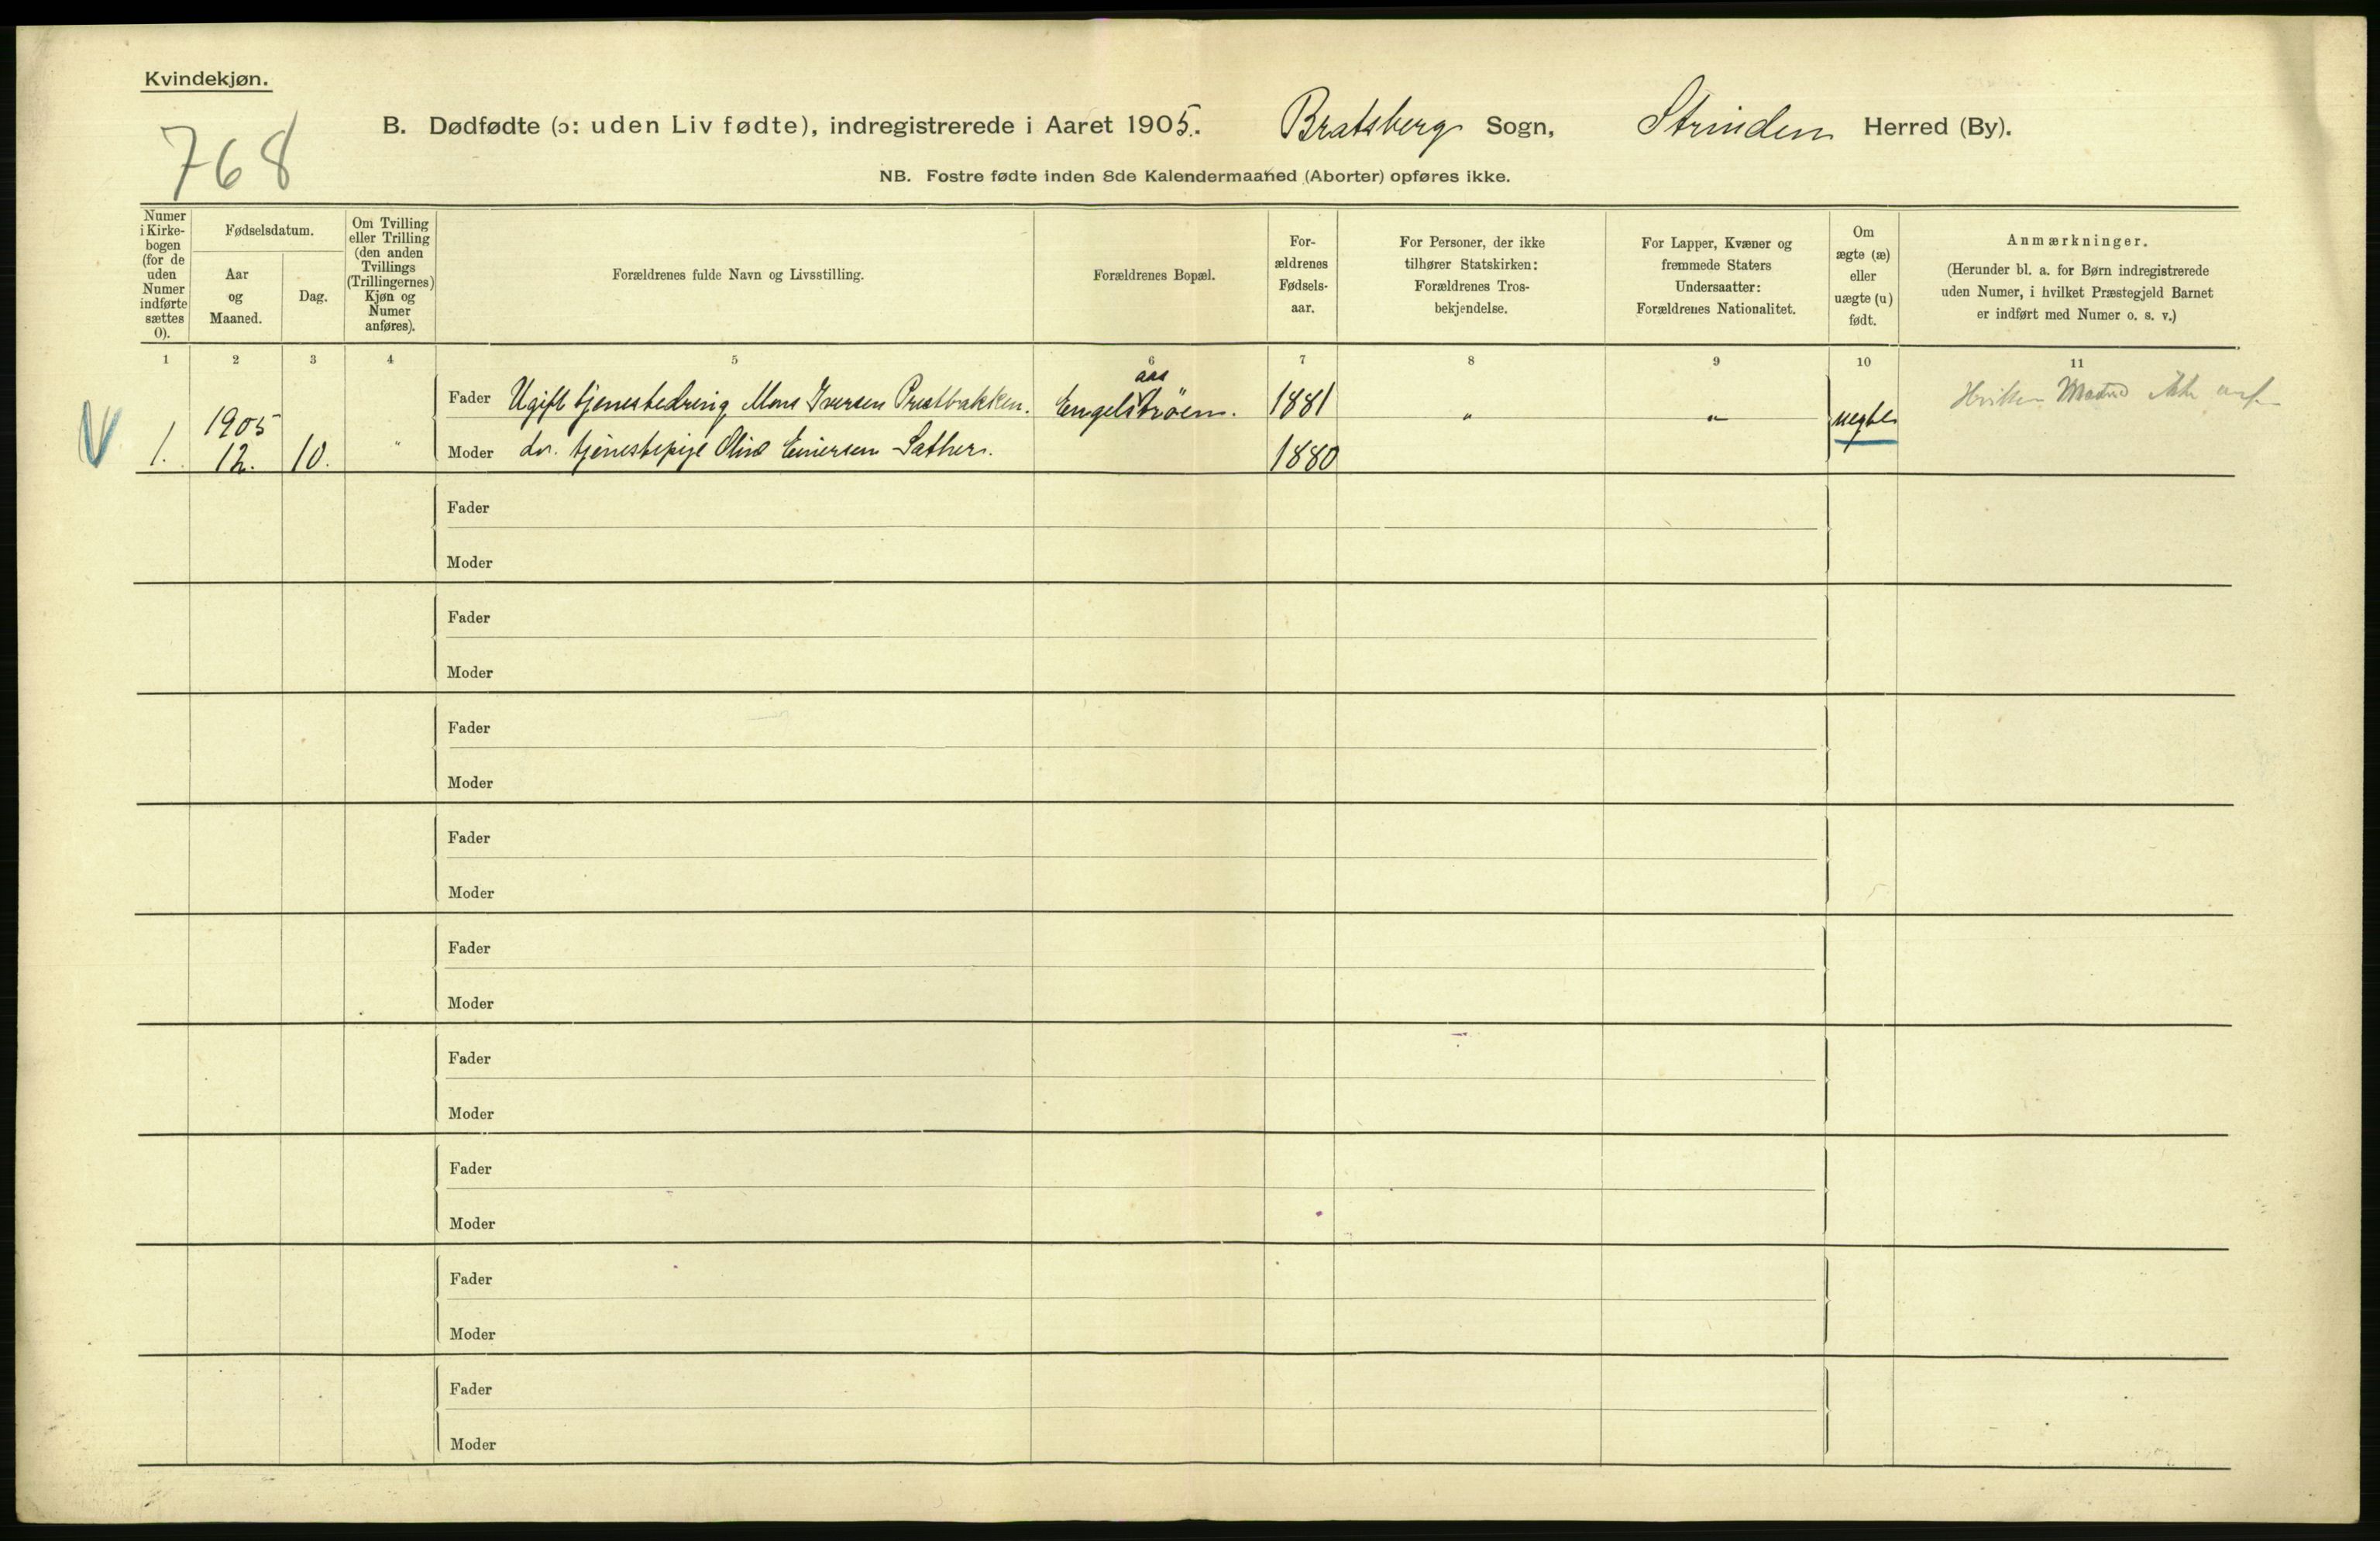 Kvindekjøn.
768
B. Dødfødte (ɔ: uden Liv fødte), indregistrerede i Aaret 1905. Bratsberg Sogn, Strinden Herred (By).
NB. Fostre fødte inden 8de Kalendermaaned (Aborter) opføres ikke.
Numer
i Kirke-
bogen
(for de
uden
Numer
indførte
sættes
0).
Fødselsdatum.
Aar
og
Maaned.
Dag.
Om Tvilling
eller Trilling
(den anden
Tvillings
(Trillingernes)
Kjøn og
Numer
anføres).
Forældrenes fulde Navn og Livsstilling.
Forældrenes Bopæl.
For-
ældrenes
Fødsels-
aar.
For Personer, der ikke
tilhører Statskirken:
Forældrenes Tros-
bekjendelse.
For Lapper, Kvæner og
fremmede Staters
Undersaatter:
Forældrenes Nationalitet.
Om
ægte (æ)
eller
uægte (u)
født.
Anmærkninger.
(Herunder bl. a. for Børn indregistrerede
uden Numer, i hvilket Præstegjeld Barnet
er indført med Numer o. s. v.)
1 2 3 4 5 6 7 8 9 10 11
aas
Fader Ugift tjenestedreng Mons Iversen Prestbakken. Engelströen. 1881 " " uegte
1905
1. 12. 10. " Moder do. tjenestepige Oline Einersen Sæther. 1880
Fader
Moder
Fader
Moder
Fader
Moder
Fader
Moder
Fader
Moder
Fader
Moder
Fader
Moder
Fader
Moder
Fader
Moder